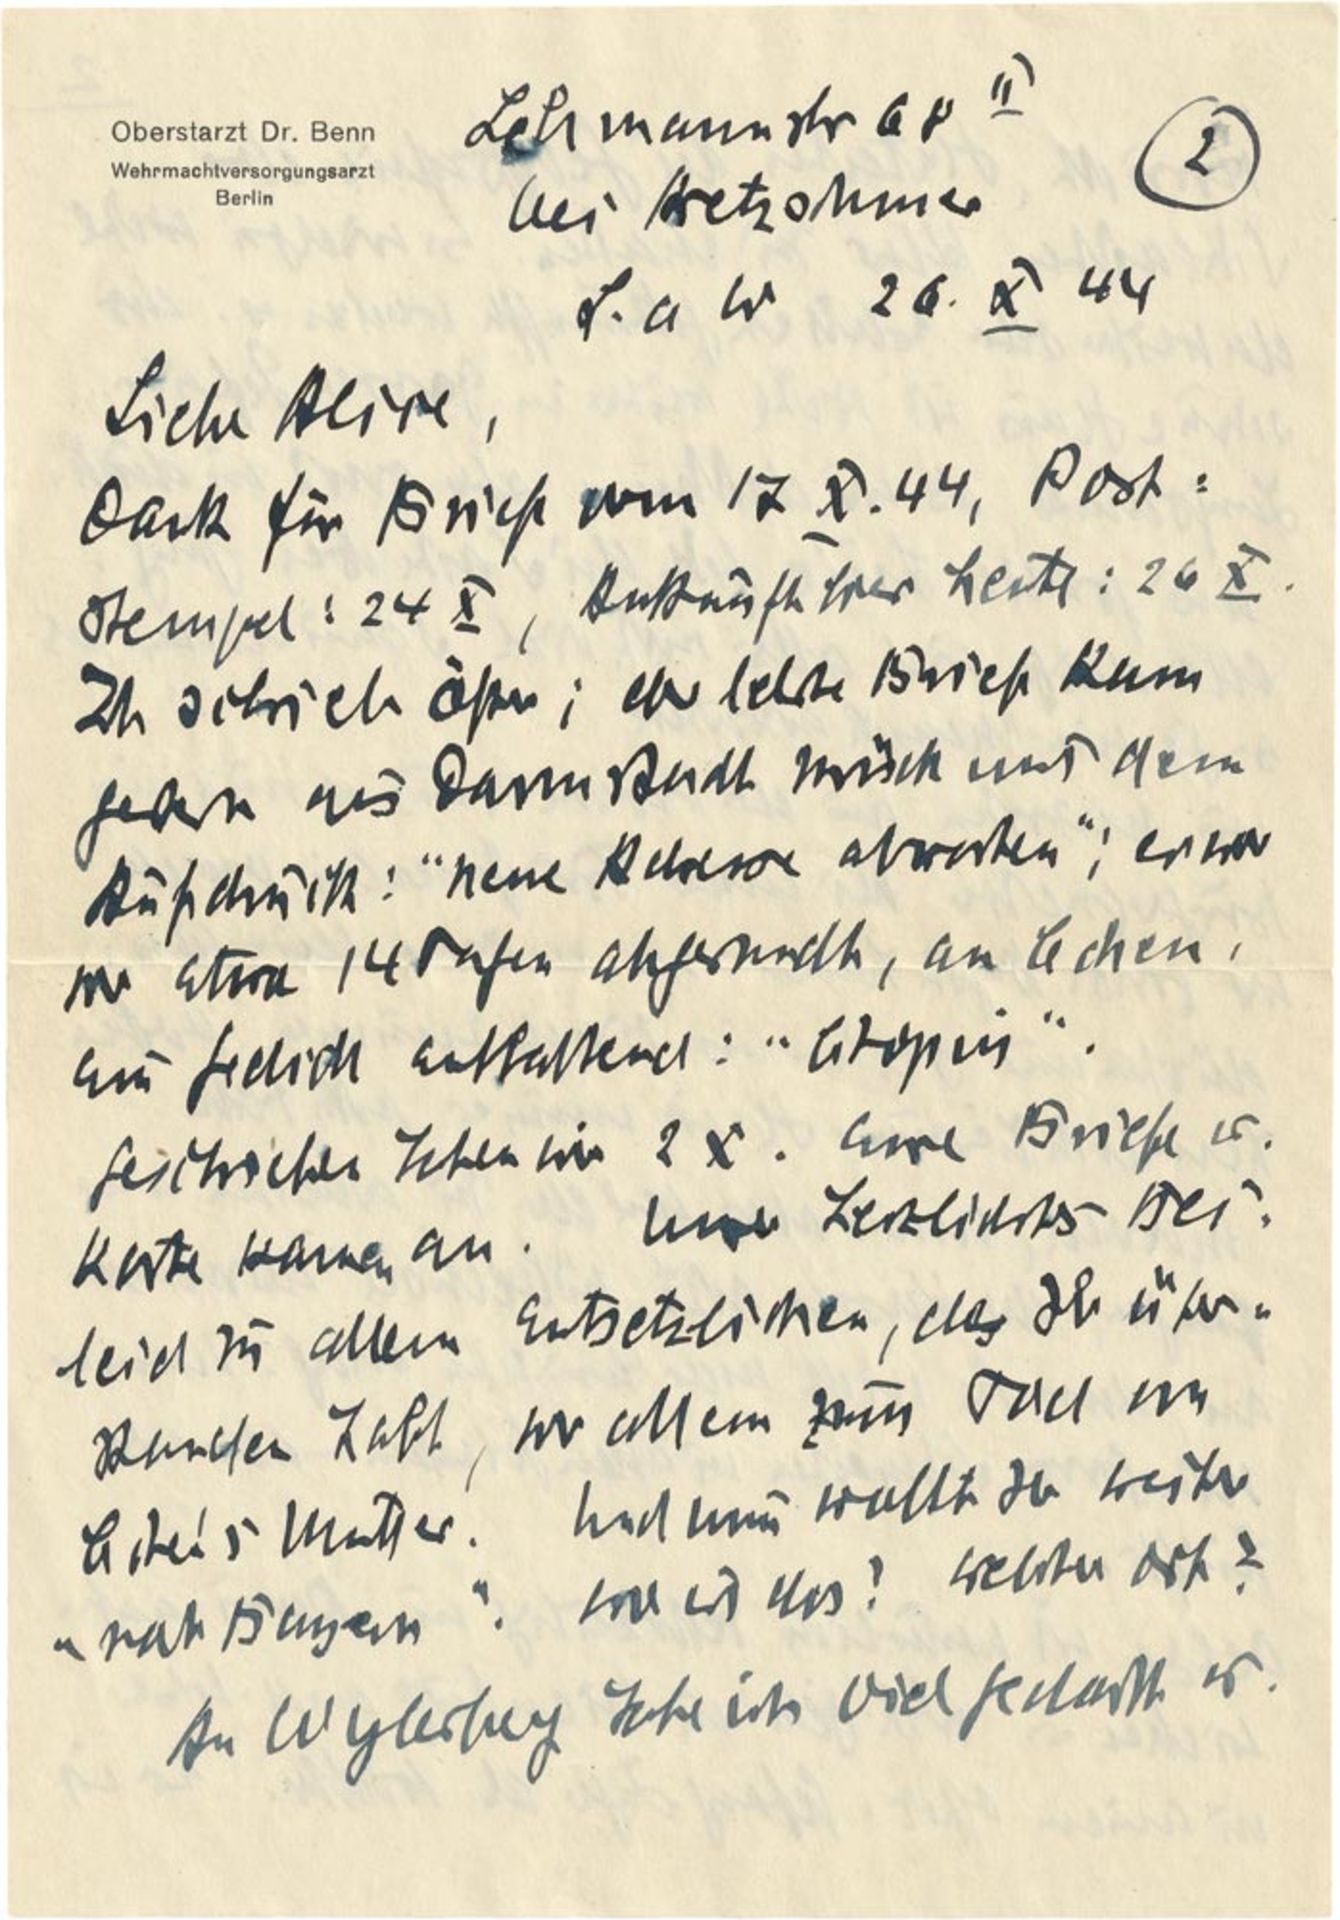 Oberstarzt Dr. Benn
Wehrmachtversorgungsarzt
Berlin
Lehmannstr 68 II
bei
2
L. a W 26. X 44
Liebe Alice,
Dank für Brief vom 17 X. 44, Post=
stempel: 24 X, Ankunft hier heute: 26 X.
Ich schrieb öfter; der letzte Brief kam
gestern aus Darmstadt zurück mit dem
Aufdruck: "neue Adresse abwarten"; er war
vor etwa 14 Tagen abgesandt, an
ein Gedicht enthaltend: "Chopin".
Geschrieben haben wir 2 X. Eure Briefe u.
Karte kamen an. Unser herzlichstes Bei-
leid zu allem Entsetzlichen, das Ihr über-
standen habt, vor allem zum Tod von
Mutter. Und nun wollt Ihr weiter
"nach Bayern". Wo ist das? Welcher Ort?
An Wylerberg habe ich viel gedacht u.